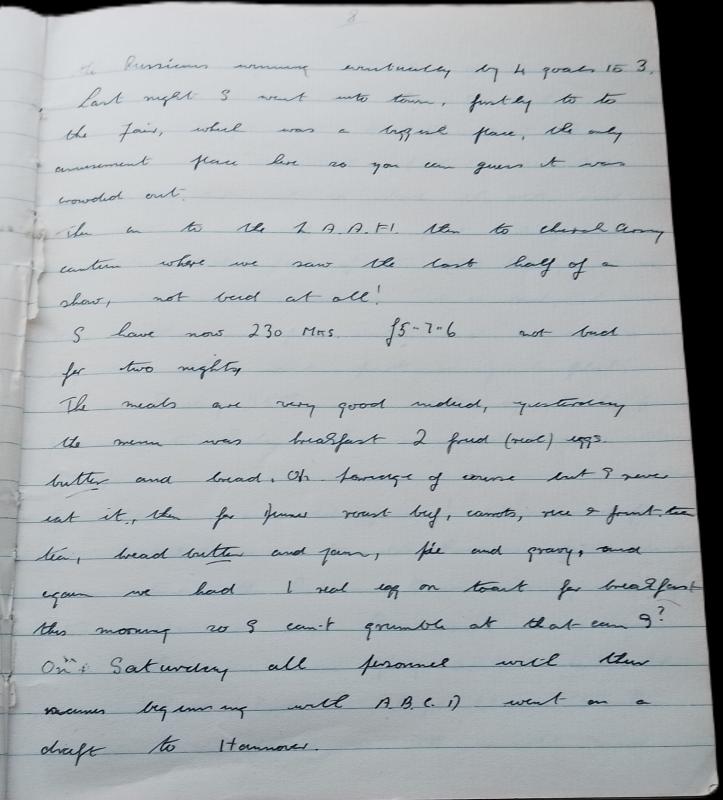 8
the Russians winning eventually by 4 goals to 3.
Last night I went into town, firstly to to
the Fair, which was a biggish place, the only
amusement place here so you can guess it was
crowded out.
Then on to the N.A.A.F.I. then to Army
canteen where we saw the last half of a
show, not bad at all!
I have now 230 Mks. £5-7-6 not bad
for two nights,
The meals are very good indeed, yesterday
the menu was breakfast 2 fried (real) eggs.
butter and bread. Oh. Porridge of course but I never
eat it., then for Dinner roast beef, carrots, rice & fruit. tea
tea, bread butter and jam, pie and gravy, and
again we had 1 real egg on toast for breakfast
this morning so I can't grumble at that can I?
On Saturday all personnel with their
names beginning with A.B.C.D went on a
draft to Hannover.